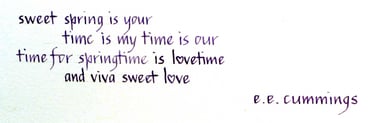 sweet spring is your
time is my time is our
time for springtime is lovetime
and viva sweet love
e.e. cummings